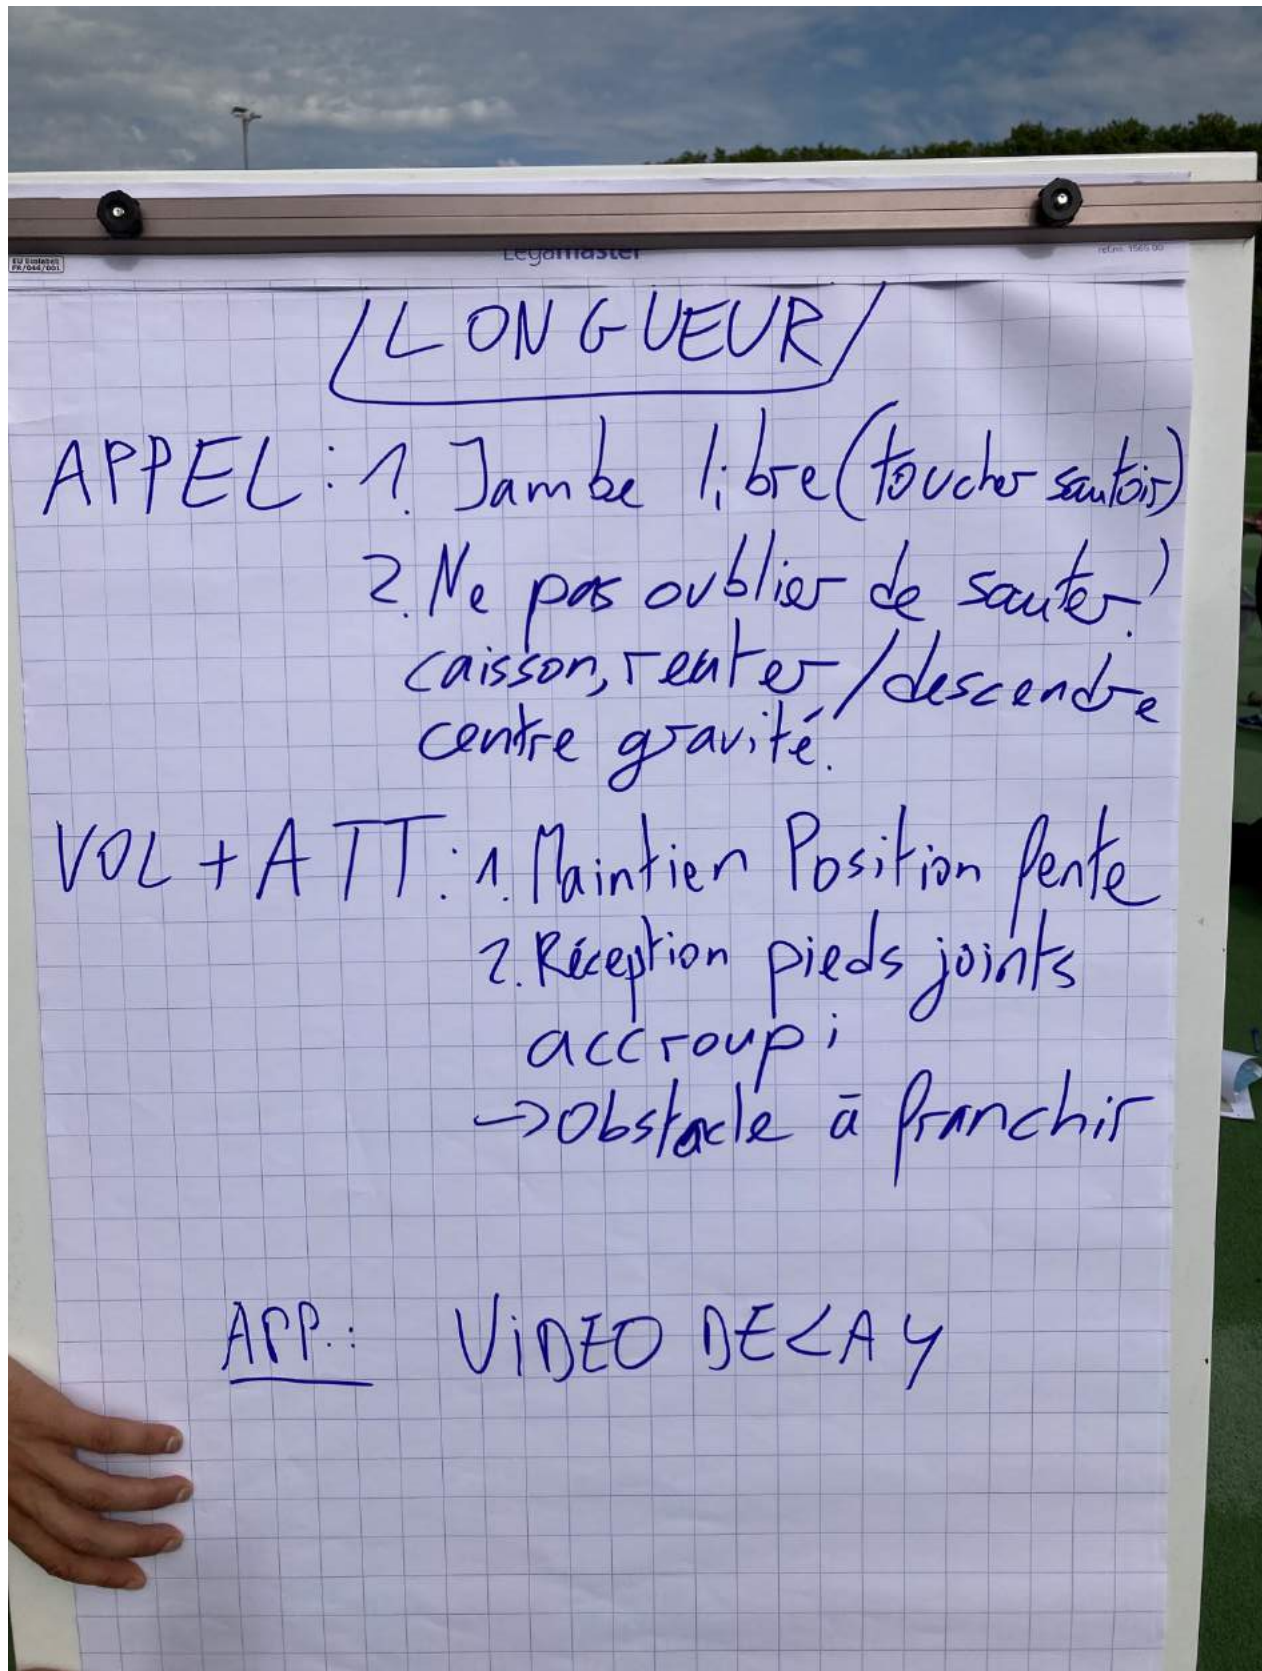 EU Ecolabel
FR/044/001
Legamaster
ref.nr. 1565 00
LONGUEUR
APPEL : 1. Jambe libre (toucher sautoir)
2. Ne pas oublier de sauter!
caisson, /descendre
centre gravité.
VOL + ATT : 1. Maintien Position fente
2. Réception pieds joints
accroupi
→ Obstacle à franchir
APP. : VIDEO DELAY